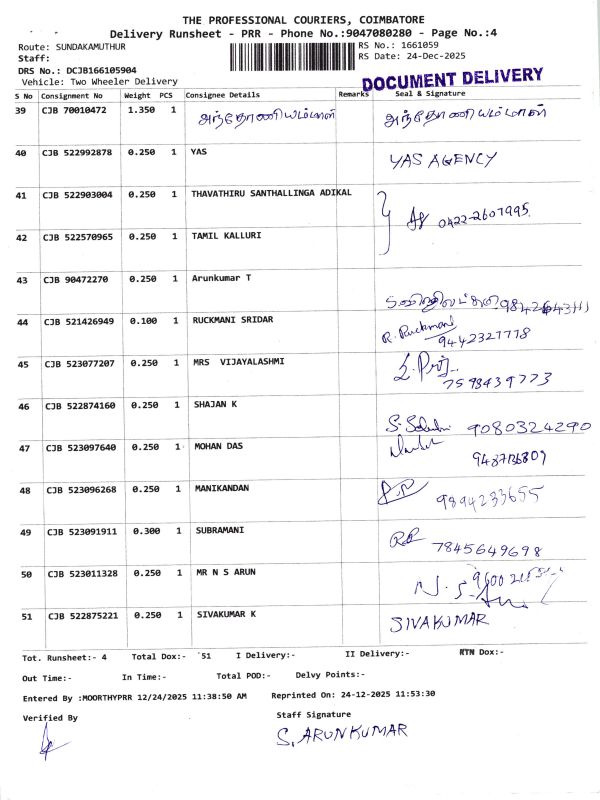 THE PROFESSIONAL COURIERS, COIMBATORE
Delivery Runsheet - PRR - Phone No.:9047080280 - Page No.:4
Route: SUNDAKAMUTHUR RS No.: 1661059
Staff: RS Date: 24-Dec-2025
DRS No.: DCJB166105904
Vehicle: Two Wheeler Delivery DOCUMENT DELIVERY
S No Consignment No Weight PCS Consignee Details Remarks Seal & Signature
39 CJB 70010472 1.350 1 அந்தோணியம்மாள் அந்தோணியம்மாள்
40 CJB 522992878 0.250 1 YAS YAS AGENCY
41 CJB 522903004 0.250 1 THAVATHIRU SANTHALLINGA ADIKAL 0422-2607995
42 CJB 522570965 0.250 1 TAMIL KALLURI
43 CJB 90472270 0.250 1 Arunkumar T
44 CJB 521426949 0.100 1 RUCKMANI SRIDAR R. Ruckmani
9442327778
45 CJB 523077207 0.250 1 MRS VIJAYALASHMI
7598439773
46 CJB 522874160 0.250 1 SHAJAN K 9080324290
47 CJB 523097640 0.250 1 MOHAN DAS
48 CJB 523096268 0.250 1 MANIKANDAN 9894233655
49 CJB 523091911 0.300 1 SUBRAMANI 7845649698
50 CJB 523011328 0.250 1 MR N S ARUN
51 CJB 522875221 0.250 1 SIVAKUMAR K SIVAKUMAR
Tot. Runsheet:- 4 Total Dox:- 51 I Delivery:- II Delivery:- RTN Dox:-
Out Time:- In Time:- Total POD:- Delvy Points:-
Entered By :MOORTHYPRR 12/24/2025 11:38:50 AM Reprinted On: 24-12-2025 11:53:30
Verified By Staff Signature
S. ARUNKUMAR